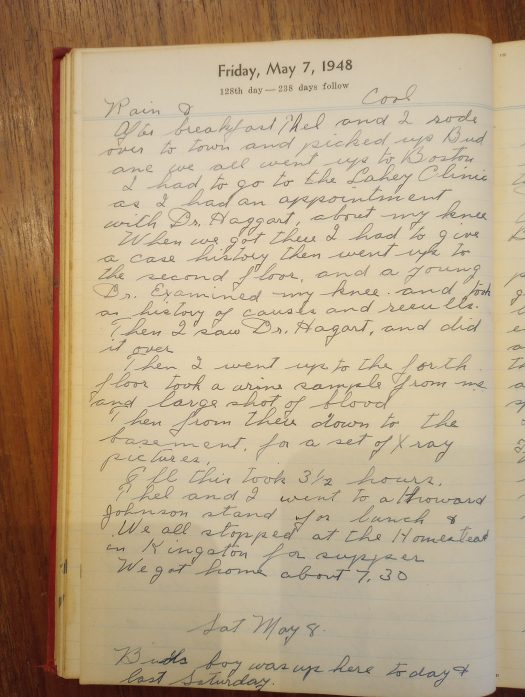 Friday, May 7, 1948
128th day — 238 days follow
Rain & Cool
After breakfast Thel and I rode
over to town and picked up Bud
and we all went up to Boston
I had to go to the Lahey Clinic
as I had an appointment
with Dr. Haggart, about my knee
When we got there I had to give
a case history then went up to
the second floor, and a young
Dr. Examined my knee and took
as history of causes and results.
Then I saw Dr. Hagart, and did
it over
Then I went up to the forth
floor took a urine sample from me
and large shot of blood
Then from there down to the
basement, for a set of X ray
pictures.
All this took 3½ hours.
Thel and I went to a Howard
Johnson stand for lunch &
We all stopped at the Homestead
in Kingston for supper
We got home about 7.30
Sat May 8.
Buds boy was up here today &
last Saturday.